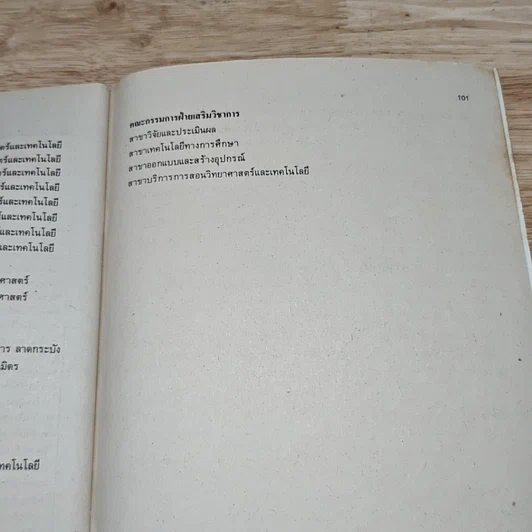 ตร์และเทคโนโลยี
ตร์และเทคโนโลยี
ตร์และเทคโนโลยี
ร์และเทคโนโลยี
ร์และเทคโนโลยี
ร์และเทคโนโลยี
และเทคโนโลยี
และเทคโนโลยี
ศาสตร์
ศาสตร์
การ ลาดกระบัง
มิตร
ทคโนโลยี
101
คณะกรรมการฝ่ายเสริมวิชาการ
สาขาวิจัยและประเมินผล
สาขาเทคโนโลยีทางการศึกษา
สาขาออกแบบและสร้างอุปกรณ์
สาขาบริการการสอนวิทยาศาสตร์และเทคโนโลยี